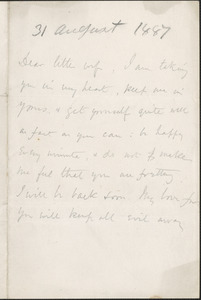 31 August 1887
Dear little wife, I am taking
you in my heart, keep me in
yours, & get yourself quite all
as fast as you can: be happy
every minute, & do not make
me feel that you are fretting
I will be back soon. My love for
you will keep all evil away